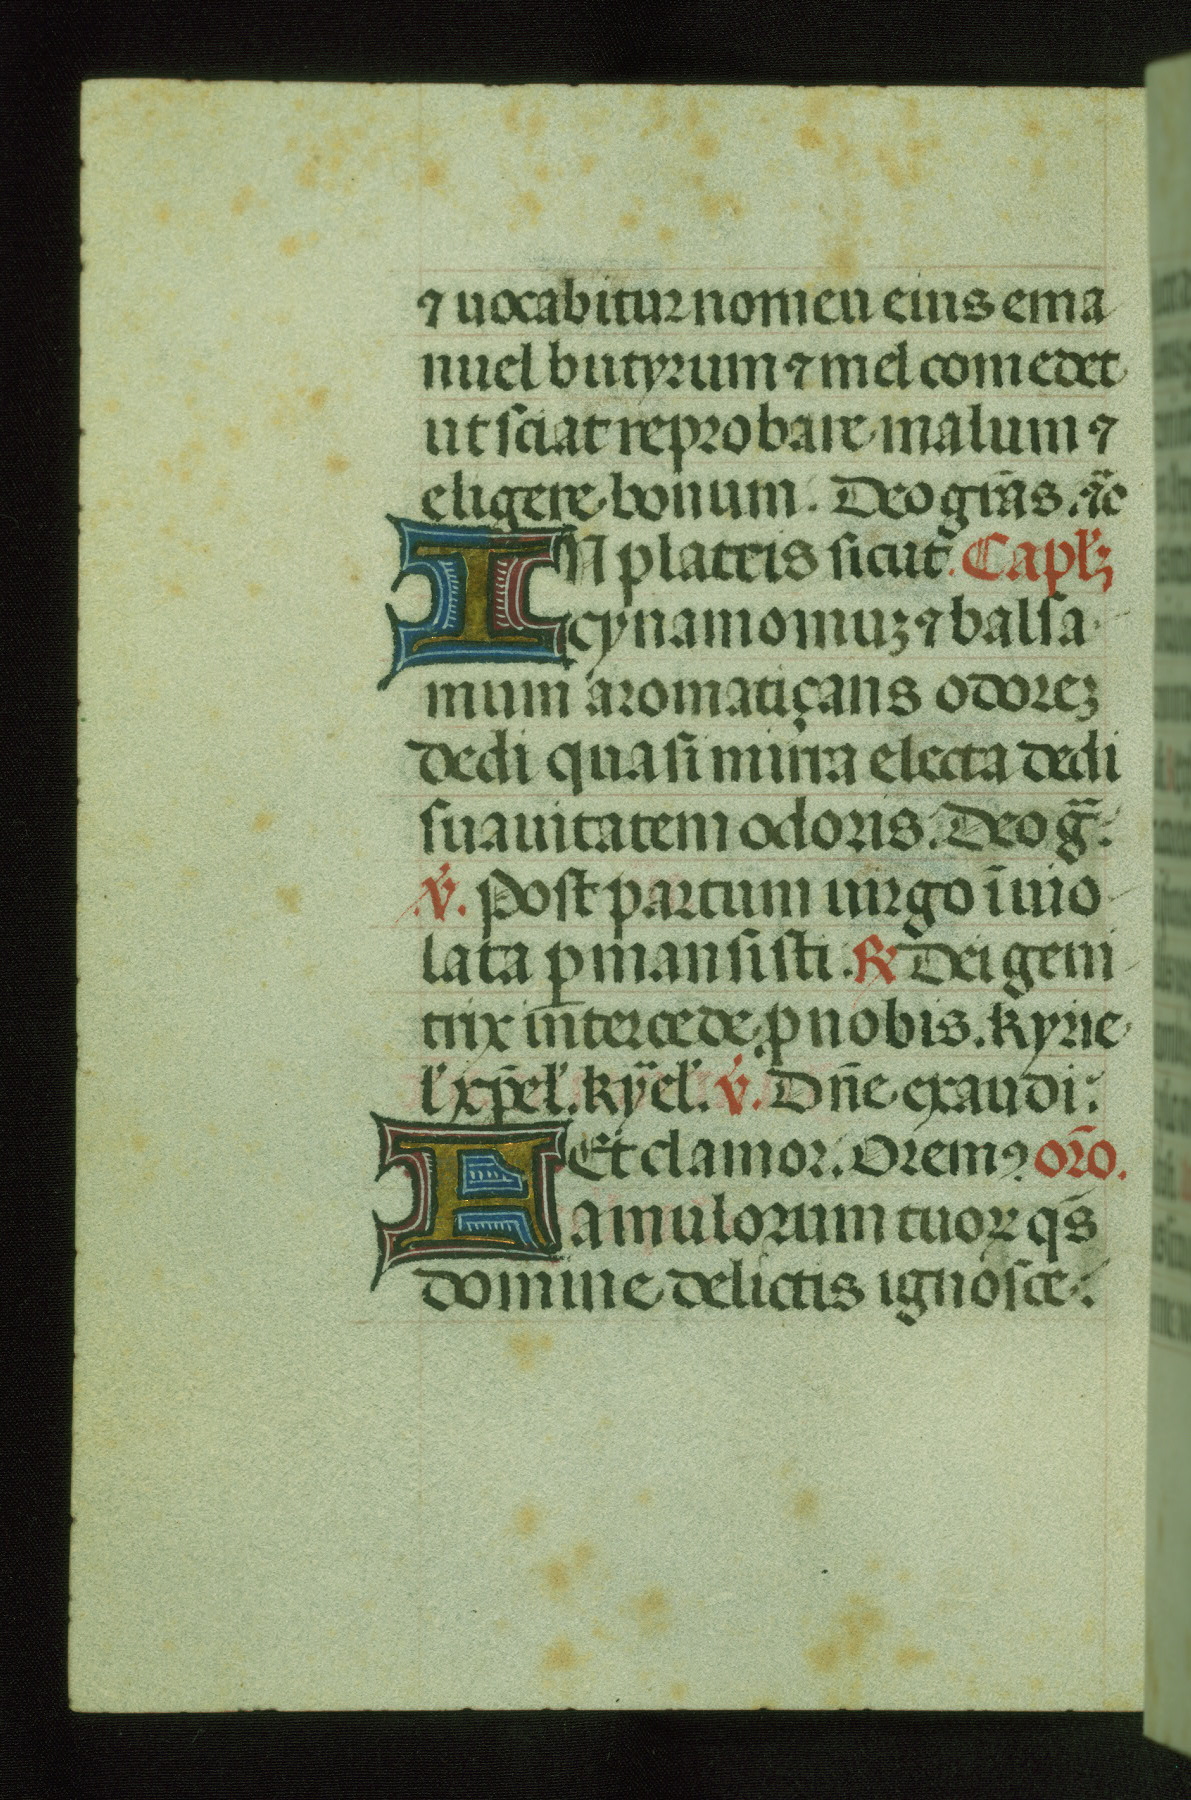 ⁊ uocabitur nomen eius ema
nuel butyrum ⁊ mel comedet
ut sciat reprobare malum ⁊
eligere bonum. Deo gr̃as. añc
IN plateis sicut. Capl'ꝫ
cynamomuꝫ ⁊ balsa
mum aromatiçans odoreꝫ
dedi quasi mirra electa dedi
suauitatem odoris. Deo g̃.
.v̇. Post partum uirgo īuio
lata ꝑmansisti. ℟ Dei geni
trix intercede ꝓ nobis. kyrie
el' xp̄el'. kyr̄el'. v̇. Dn̄e exaudi.
Et clamor. Oremꝰ or̄o.
Famulorum tuoꝝ qs̄
domine delictis ignosce.